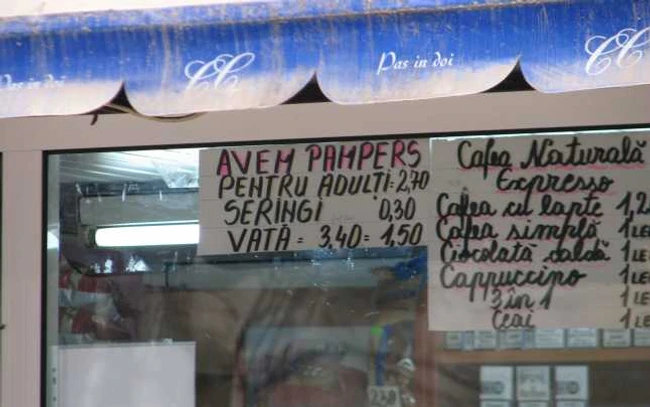 Pas in doi
CC
Pas in doi
CC
AVEM PAMPERS
PENTRU ADULȚI = 2,70
SERINGI 0,30
VATĂ = 3,40 = 1,50
Cafea Naturală
Expresso
Cafea cu lapte 1,2
Cafea simplă 1 LE
Ciocolată caldă 1 LE
Cappuccino 1 LE
3 în 1 1 LE
Ceai 1 LE